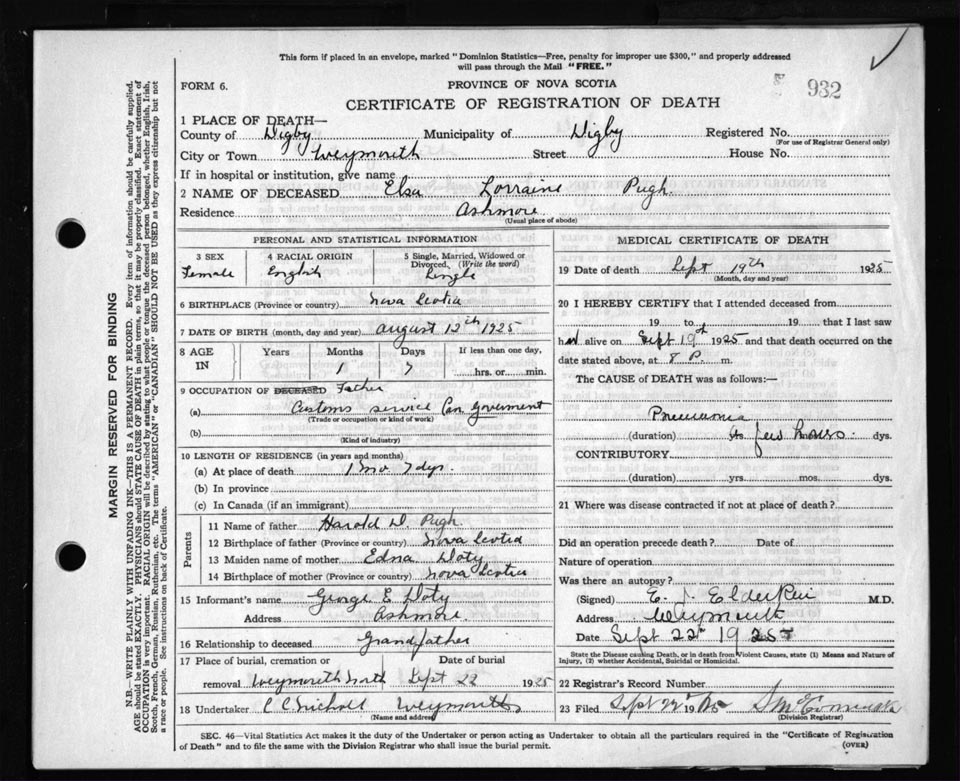 This form if placed in an envelope, marked "Dominion Statistics—Free, penalty for improper use $300," and properly addressed
will pass through the Mail "FREE."
FORM 6.
PROVINCE OF NOVA SCOTIA
932
CERTIFICATE OF REGISTRATION OF DEATH
1 PLACE OF DEATH—
County of Digby Municipality of Digby Registered No.
(For use of Registrar General only)
City or Town Weymouth Street House No.
If in hospital or institution, give name
2 NAME OF DECEASED Elsa Lorraine Pugh.
Residence Ashmore
(Usual place of abode)
PERSONAL AND STATISTICAL INFORMATION
3 SEX 4 RACIAL ORIGIN 5 Single, Married, Widowed or
Divorced, (Write the word)
Female English Single
6 BIRTHPLACE (Province or country) Nova Scotia
7 DATE OF BIRTH (month, day and year) August 12th 1925
8 AGE IN Years Months Days If less than one day,
1 7 hrs. or min.
9 OCCUPATION OF DECEASED Father
(a) Customs service Can Government
(Trade or occupation or kind of work)
(b)
(Kind of industry)
10 LENGTH OF RESIDENCE (in years and months)
(a) At place of death 1 mo 7 dys.
(b) In province
(c) In Canada (if an immigrant)
Parents
11 Name of father Harold D. Pugh.
12 Birthplace of father (Province or country) Nova Scotia
13 Maiden name of mother Edna Doty
14 Birthplace of mother (Province or country) Nova Scotia
15 Informant's name George E Doty
Address Ashmore
16 Relationship to deceased Grandfather
17 Place of burial, cremation or Date of burial
removal Weymouth North Sept 22 1925
18 Undertaker Weymouth
(Name and address)
MEDICAL CERTIFICATE OF DEATH
19 Date of death Sept 19th 1925
(Month, day and year)
20 I HEREBY CERTIFY that I attended deceased from
19 to 19 that I last saw
h alive on Sept 19 1925 and that death occurred on the
date stated above, at 8 P. m.
The CAUSE of DEATH was as follows:—
Pneumonia
(duration) few hours dys.
CONTRIBUTORY
(duration) yrs. mos. dys.
21 Where was disease contracted if not at place of death?
Did an operation precede death? Date of
Nature of operation
Was there an autopsy?
(Signed) E. J. Elderkin M.D.
Address Weymouth
Date Sept 22 1925
State the Disease causing Death, or in death from Violent Causes, state (1) Means and Nature of
Injury, (2) whether Accidental, Suicidal or Homicidal.
22 Registrar's Record Number
23 Filed Sept 22 1925
(Division Registrar)
SEC. 46—Vital Statistics Act makes it the duty of the Undertaker or person acting as Undertaker to obtain all the particulars required in the "Certificate of Registration
of Death" and to file the same with the Division Registrar who shall issue the burial permit.
(OVER)
MARGIN RESERVED FOR BINDING
N.B.—WRITE PLAINLY WITH UNFADING INK—THIS IS A PERMANENT RECORD. Every item of information should be carefully supplied.
AGE should be stated EXACTLY. PHYSICIANS should STATE CAUSE OF DEATH in plain terms, so that it may be properly classified. Exact statement of
OCCUPATION is very important. RACIAL ORIGIN will be described by stating to what people or tongue the deceased person belonged, whether English, Irish,
Scotch, French, German, Russian, Ruthenian, etc. The terms "AMERICAN" or "CANADIAN" SHOULD NOT BE USED as they express citizenship but not
a race or people. See instructions on back of Certificate.